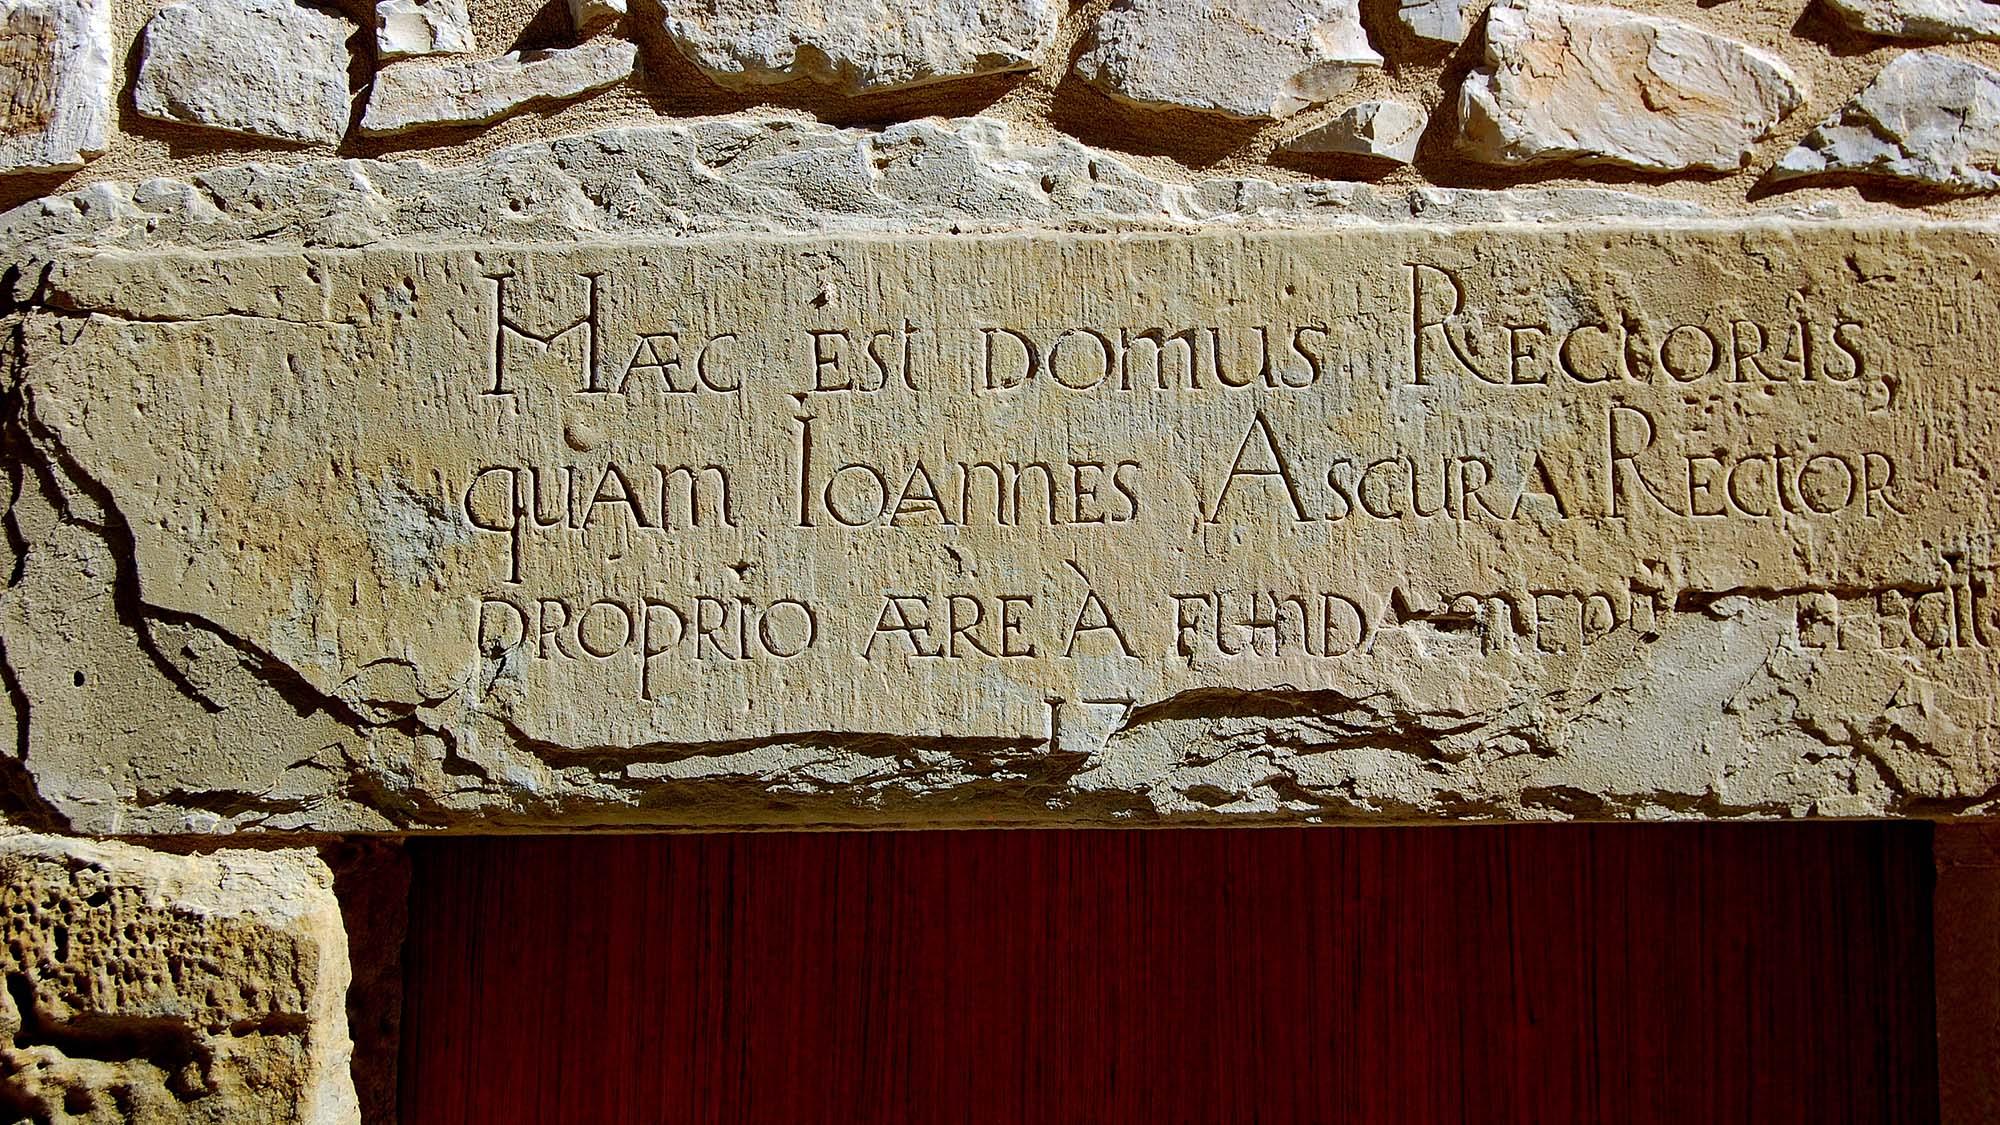 Hæc est domus Rectoris,
quam Ioannes Ascura Rector
proprio ære à fundamentis efecit
17